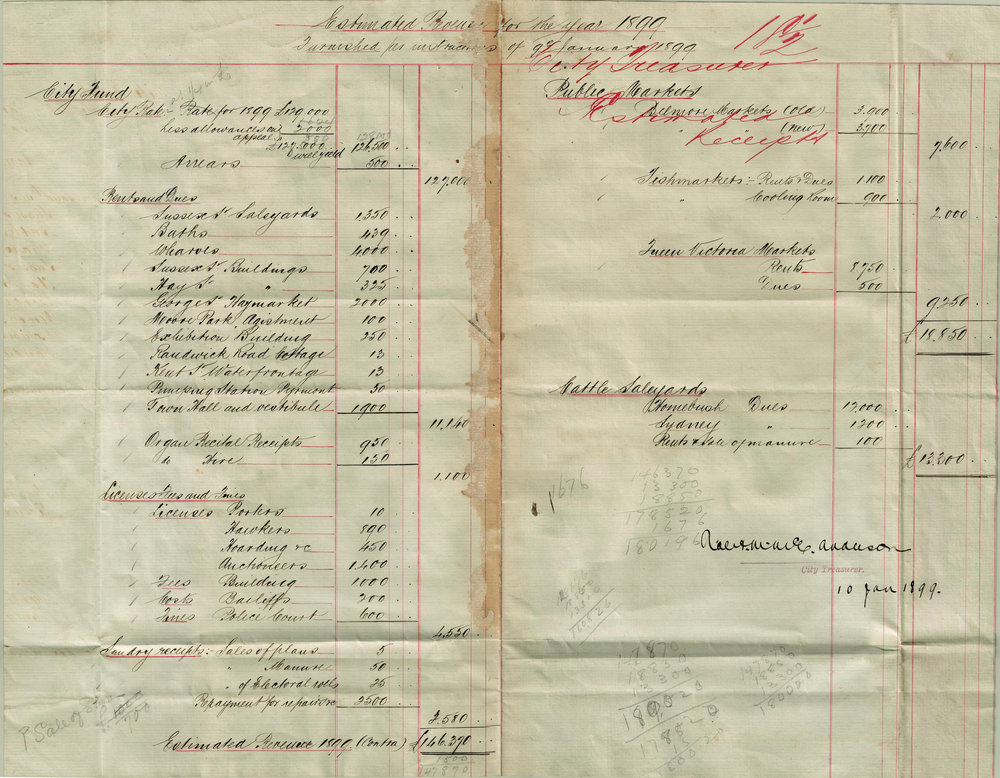 Estimated Revenue for the Year 1899
Furnished per instructions of 9th January 1899
City Treasurer
Estimated
Receipts
City Fund
City Rate - Rate for 1899 £129,000
Less allowances on appeal 2000
£127,000 126,500
Arrears 500
127,000
Rents and Dues
Sussex St Saleyards 1,350
Baths 439
Wharves 4,000
Sussex St Buildings 700
Hay St " 325
George St Haymarket 2000
Moore Park Agistment 100
Exhibition Building 250
Randwick Road Cottage 13
Kent St Waterfrontage 13
Pumping Station Pyrmont 50
Town Hall and vestibule 1900
11,140
Organ Recital Receipts 950
do Hire 150
1,100
Licenses Fees and Fines
Licenses Porters 10
Hawkers 890
Hoarding &c 450
Auctioneers 1400
Fees Building 1000
Costs Bailiffs 200
Fines Police Court 600
4,550
Sundry receipts :- Sales of plans 5
" Manure 50
" of Electoral rolls 25
Repayment for repairs &c 2500
2,580
Estimated Revenue 1899 (Contra) £146,370
1500
147870
Public Markets
Belmore Markets (old) 3,900
" (new) 3,700
7,600
Fishmarkets :- Rents & Dues 1,100
" Cooling Room 900
2,000
Queen Victoria Markets
Rents 8750
Dues 500
9250
£18,850
Cattle Saleyards
Homebush Dues 12,000
Sydney " 1200
Rents & Sale of manure 100
£13,300
1676
146370
13300
18850
178520
1676
180196
City Treasurer.
10 Jan 1899.
147870
18850
13300
180020